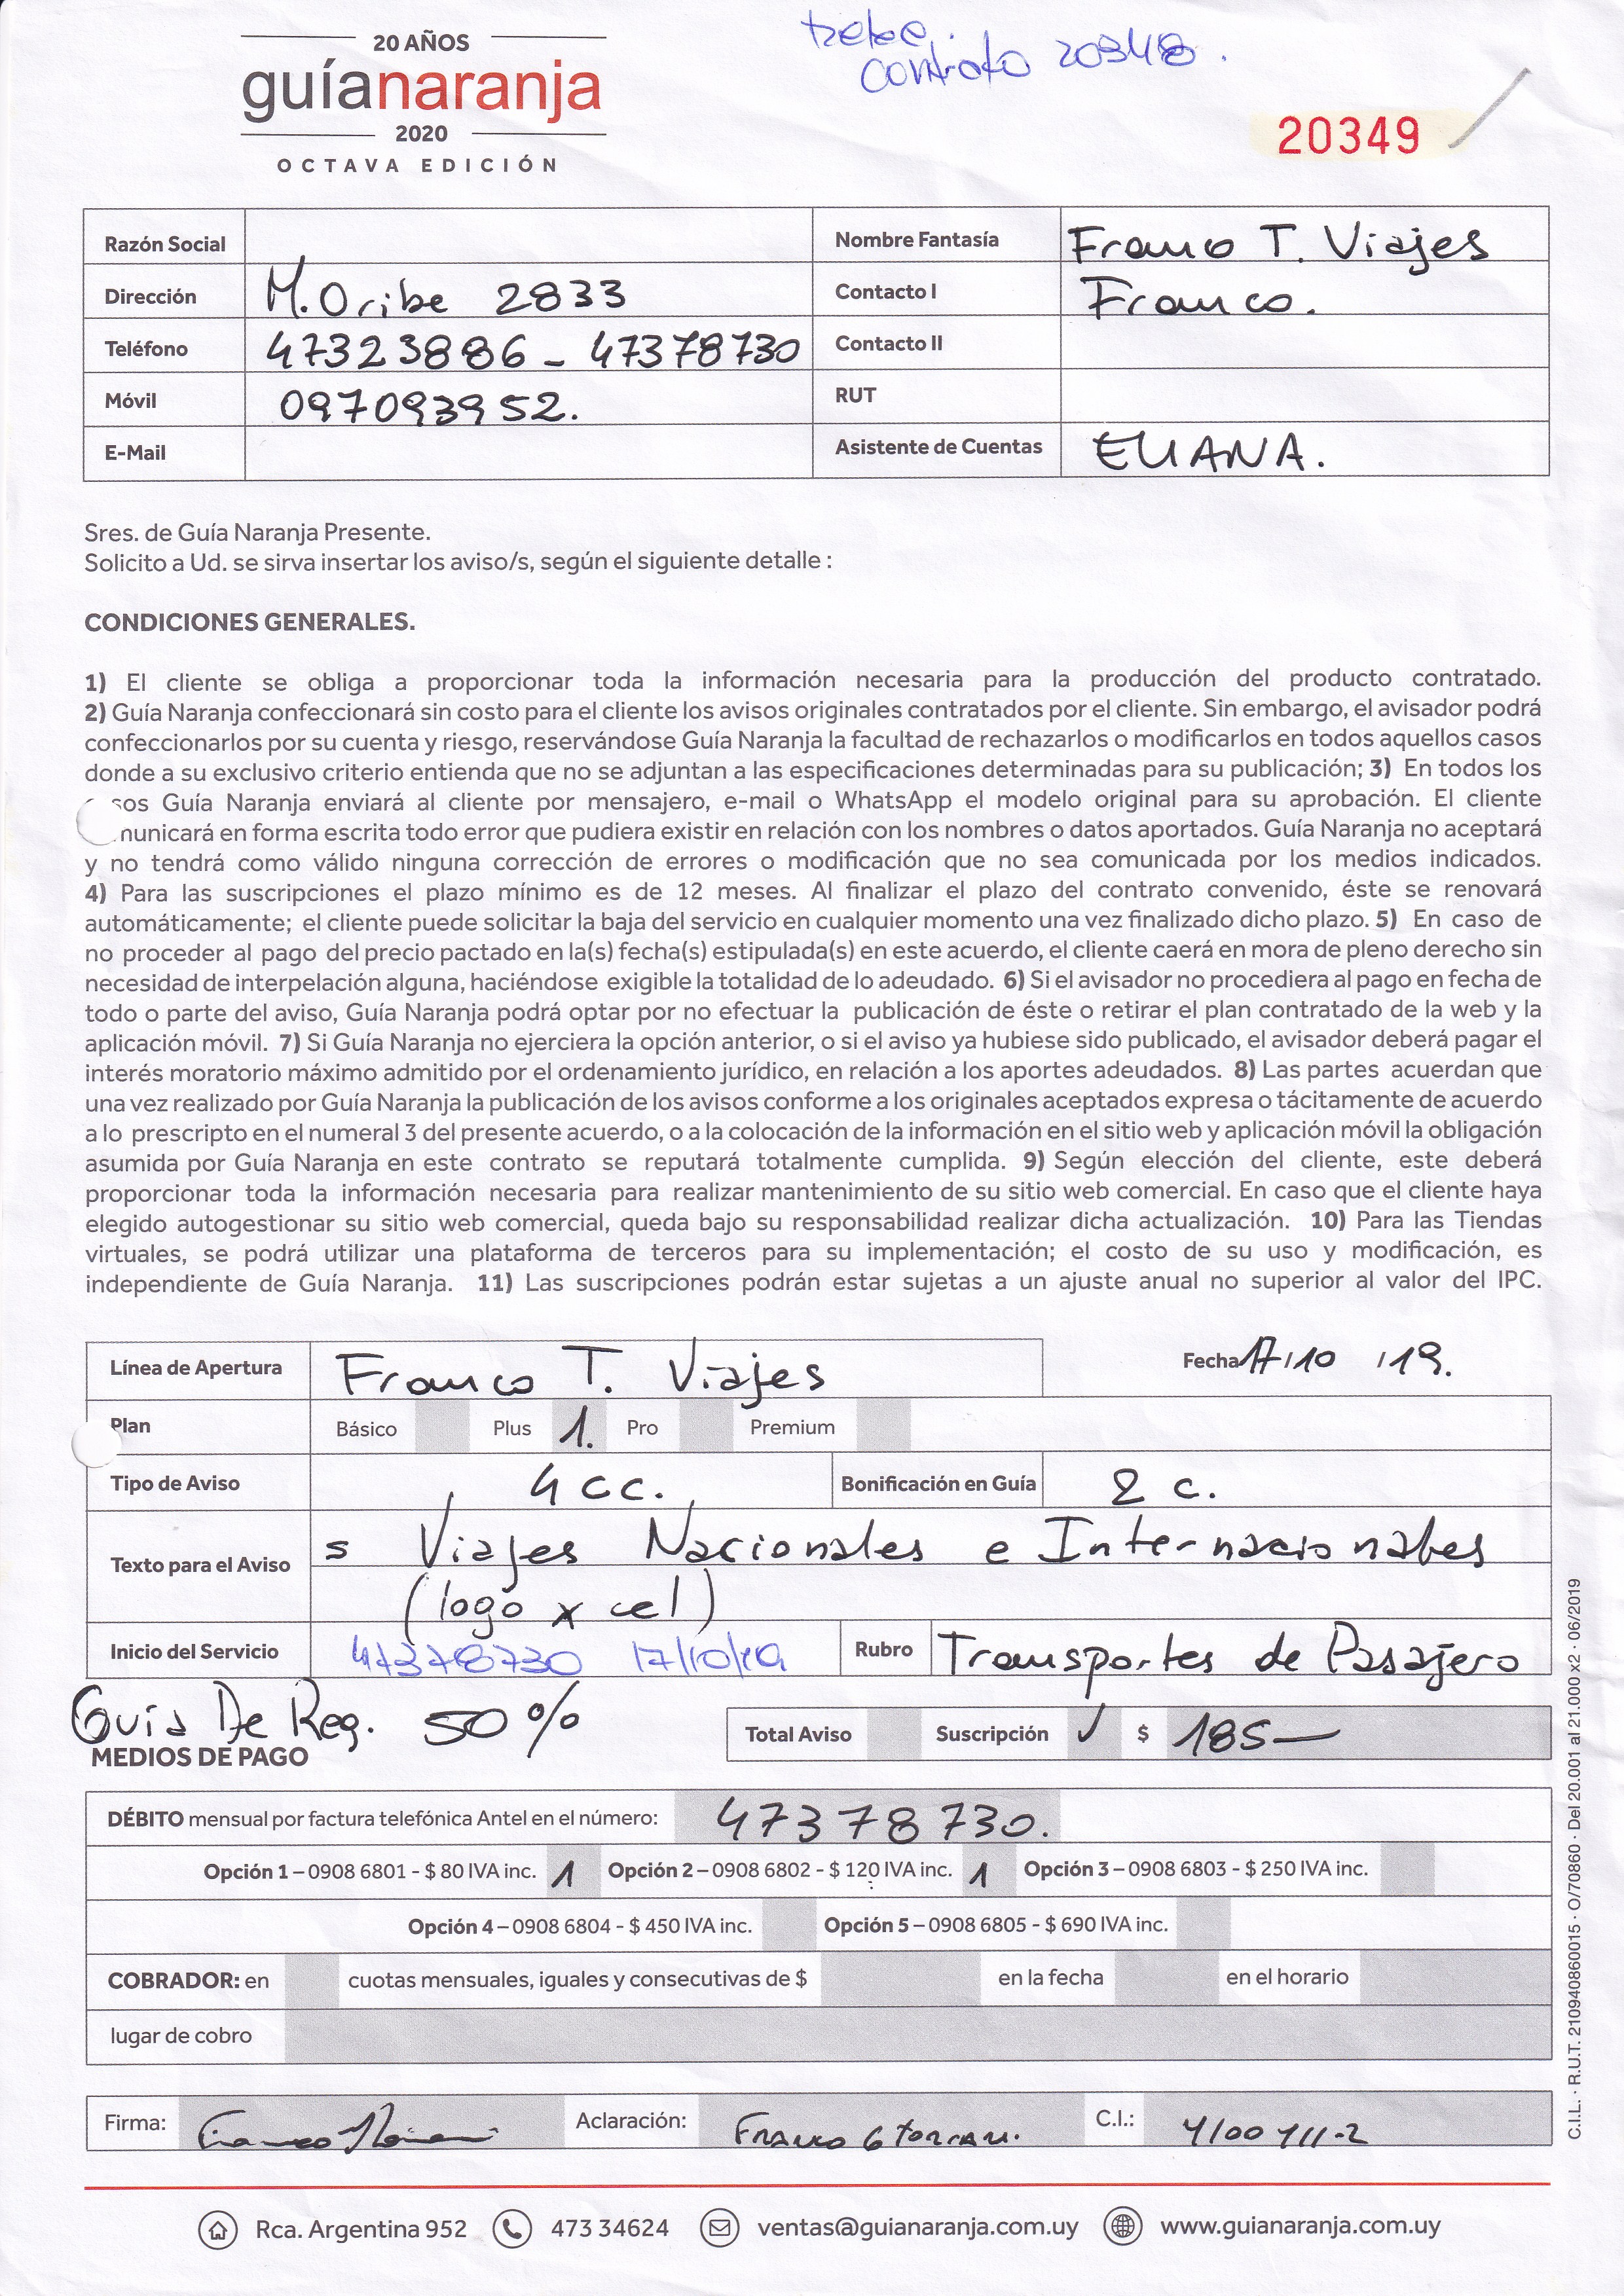 20 AÑOS
guíanaranja
2020
OCTAVA EDICIÓN
contrato 20348.
20349
Razón Social
Nombre Fantasía Franco T. Viajes
Dirección M. Oribe 2833
Contacto I Franco.
Teléfono 47323886 - 47378730
Contacto II
Móvil 097093952.
RUT
E-Mail
Asistente de Cuentas ELIANA.
Sres. de Guía Naranja Presente.
Solicito a Ud. se sirva insertar los aviso/s, según el siguiente detalle :
CONDICIONES GENERALES.
1) El cliente se obliga a proporcionar toda la información necesaria para la producción del producto contratado.
2) Guía Naranja confeccionará sin costo para el cliente los avisos originales contratados por el cliente. Sin embargo, el avisador podrá
confeccionarlos por su cuenta y riesgo, reservándose Guía Naranja la facultad de rechazarlos o modificarlos en todos aquellos casos
donde a su exclusivo criterio entienda que no se adjuntan a las especificaciones determinadas para su publicación; 3) En todos los
sos Guía Naranja enviará al cliente por mensajero, e-mail o WhatsApp el modelo original para su aprobación. El cliente
municará en forma escrita todo error que pudiera existir en relación con los nombres o datos aportados. Guía Naranja no aceptará
y no tendrá como válido ninguna corrección de errores o modificación que no sea comunicada por los medios indicados.
4) Para las suscripciones el plazo mínimo es de 12 meses. Al finalizar el plazo del contrato convenido, éste se renovará
automáticamente; el cliente puede solicitar la baja del servicio en cualquier momento una vez finalizado dicho plazo. 5) En caso de
no proceder al pago del precio pactado en la(s) fecha(s) estipulada(s) en este acuerdo, el cliente caerá en mora de pleno derecho sin
necesidad de interpelación alguna, haciéndose exigible la totalidad de lo adeudado. 6) Si el avisador no procediera al pago en fecha de
todo o parte del aviso, Guía Naranja podrá optar por no efectuar la publicación de éste o retirar el plan contratado de la web y la
aplicación móvil. 7) Si Guía Naranja no ejerciera la opción anterior, o si el aviso ya hubiese sido publicado, el avisador deberá pagar el
interés moratorio máximo admitido por el ordenamiento jurídico, en relación a los aportes adeudados. 8) Las partes acuerdan que
una vez realizado por Guía Naranja la publicación de los avisos conforme a los originales aceptados expresa o tácitamente de acuerdo
a lo prescripto en el numeral 3 del presente acuerdo, o a la colocación de la información en el sitio web y aplicación móvil la obligación
asumida por Guía Naranja en este contrato se reputará totalmente cumplida. 9) Según elección del cliente, este deberá
proporcionar toda la información necesaria para realizar mantenimiento de su sitio web comercial. En caso que el cliente haya
elegido autogestionar su sitio web comercial, queda bajo su responsabilidad realizar dicha actualización. 10) Para las Tiendas
virtuales, se podrá utilizar una plataforma de terceros para su implementación; el costo de su uso y modificación, es
independiente de Guía Naranja. 11) Las suscripciones podrán estar sujetas a un ajuste anual no superior al valor del IPC.
Línea de Apertura Franco T. Viajes
Fecha 17/10/19.
Plan Básico Plus 1. Pro Premium
Tipo de Aviso 4 cc. Bonificación en Guía 2 c.
Texto para el Aviso s Viajes Nacionales e Internacionales
(logo x cel)
Inicio del Servicio 47378730 17/10/19 Rubro Transportes de Pasajero
Guía De Reg. 50%
Total Aviso Suscripción ✓ $ 185—
MEDIOS DE PAGO
DÉBITO mensual por factura telefónica Antel en el número: 47378730.
Opción 1 – 0908 6801 - $ 80 IVA inc. 1 Opción 2 – 0908 6802 - $ 120 IVA inc. 1 Opción 3 – 0908 6803 - $ 250 IVA inc.
Opción 4 – 0908 6804 - $ 450 IVA inc. Opción 5 – 0908 6805 - $ 690 IVA inc.
COBRADOR: en cuotas mensuales, iguales y consecutivas de $ en la fecha en el horario
lugar de cobro
Firma: Aclaración: Franco C.I.:
Rca. Argentina 952 473 34624 ventas@guianaranja.com.uy www.guianaranja.com.uy
C.I.L. · R.U.T. 210940860015 · O/70860 · Del 20.001 al 21.000 x2 · 06/2019